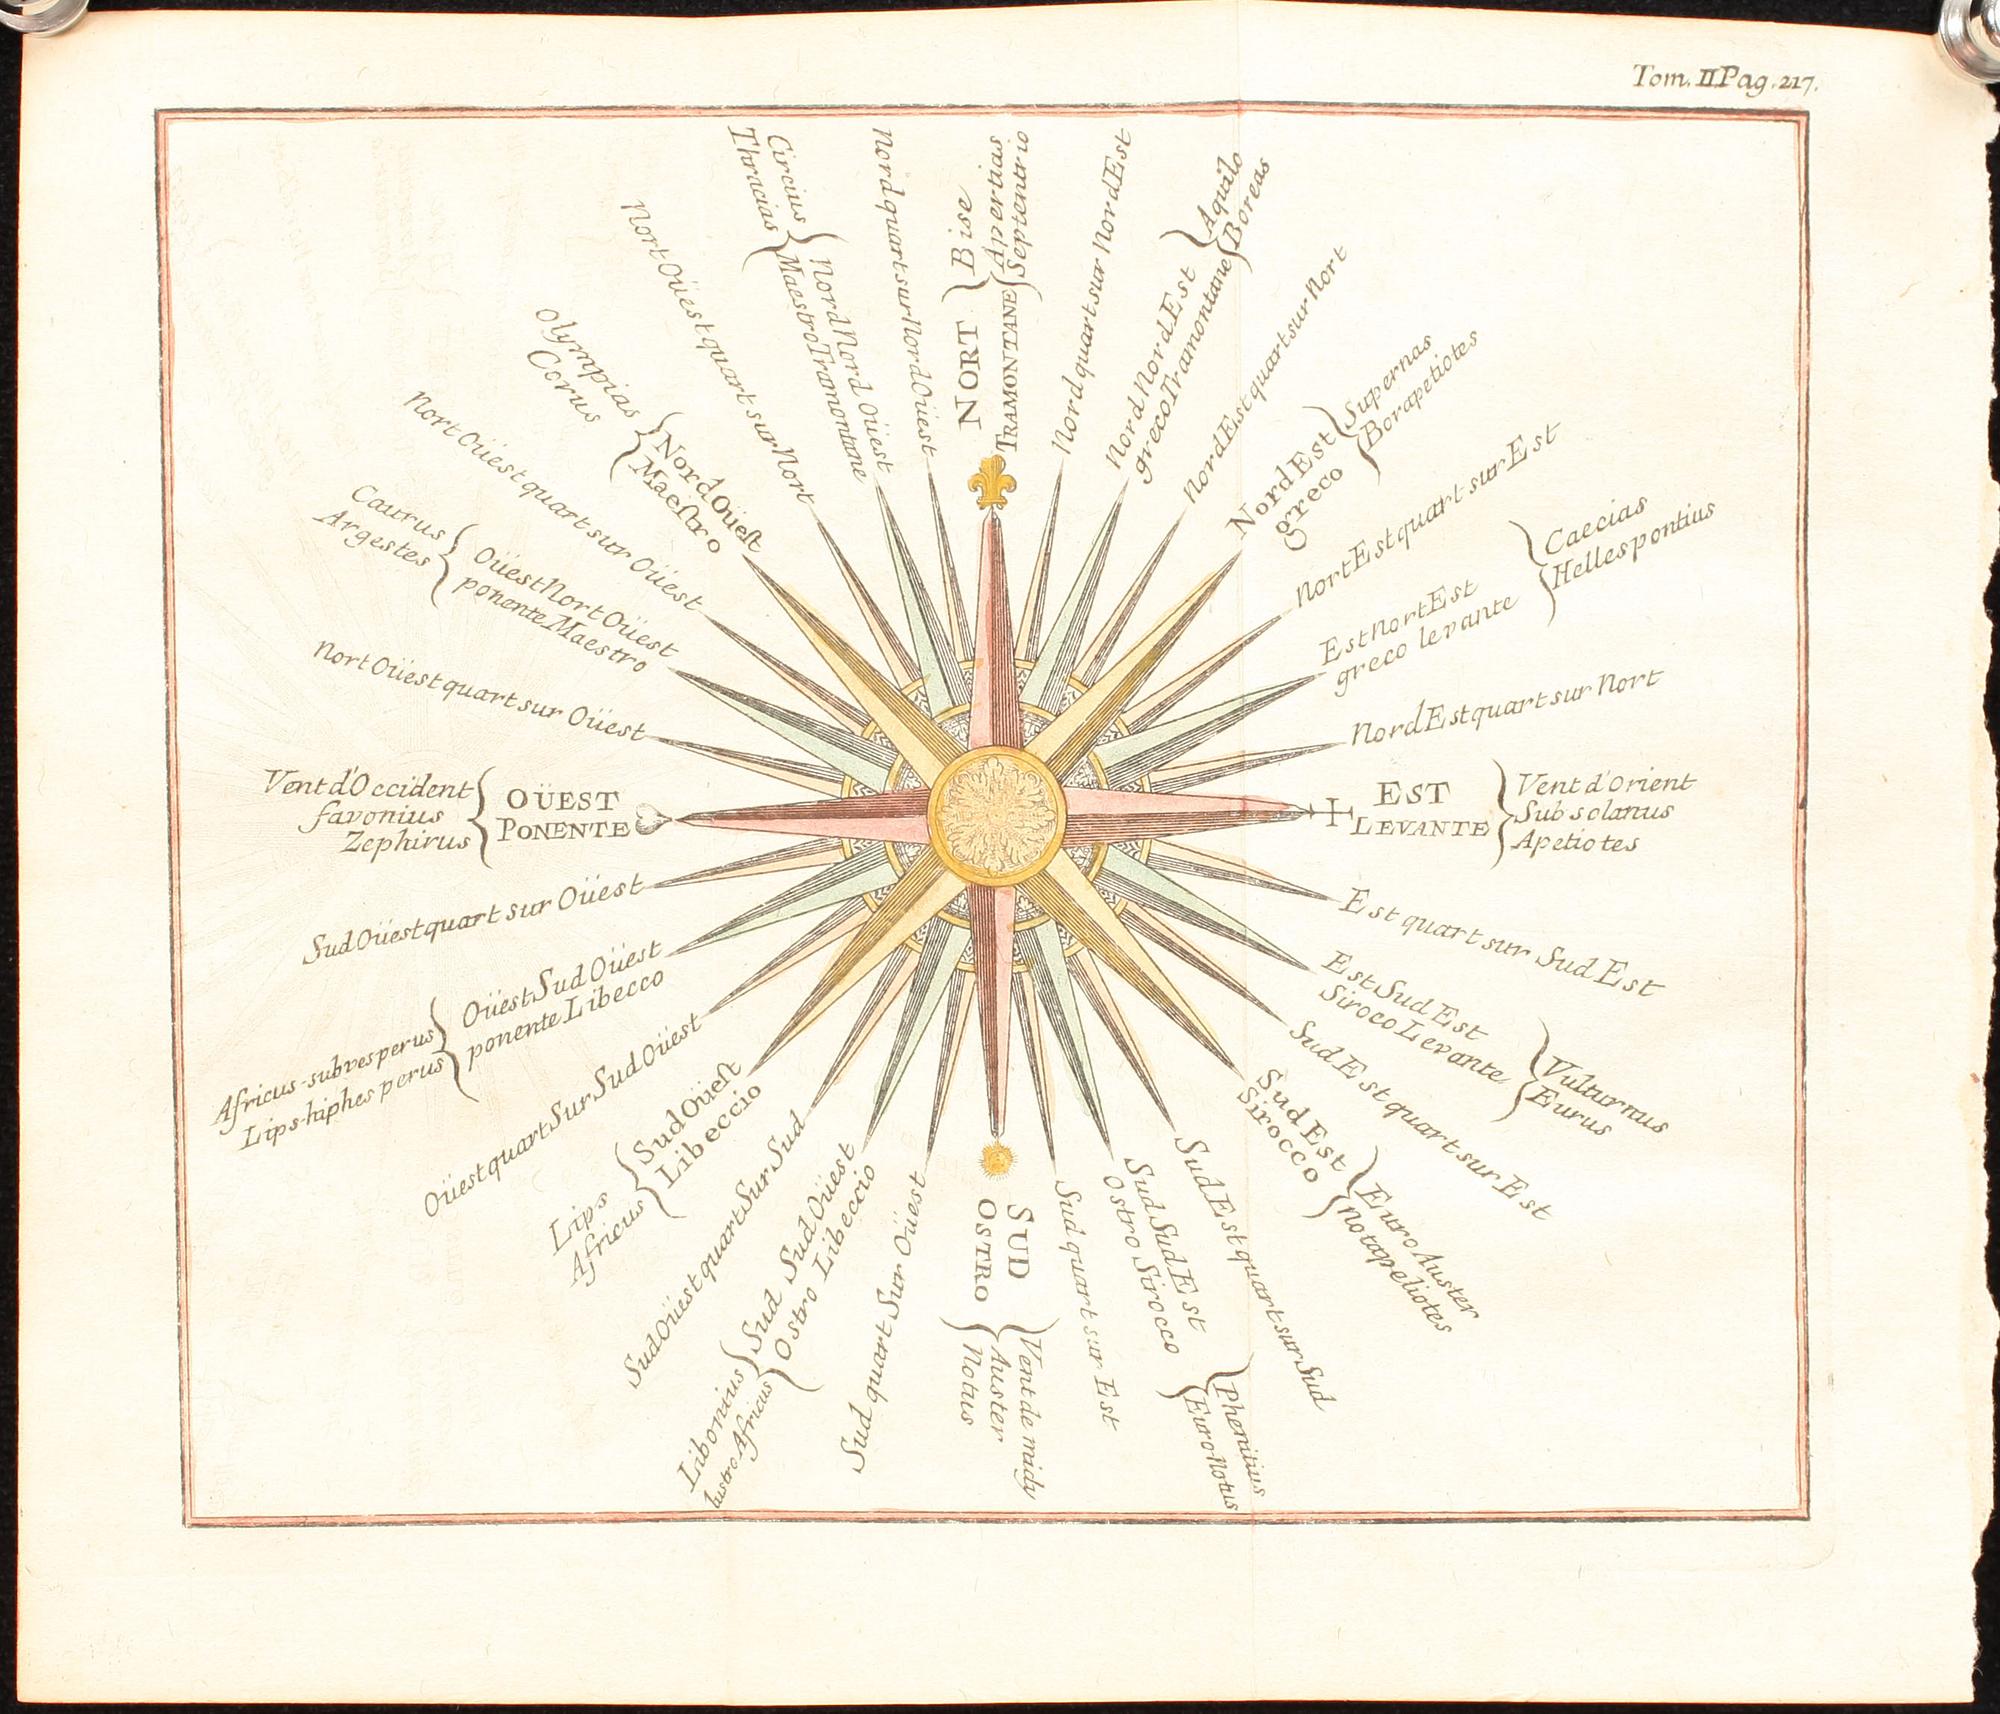 Tom. II Pag. 217.
NORT
TRAMONTANE
Bise
Apertias
Septentrio
Nord quart sur Nord Est
Nord Nord Est
greco Tramontane
Aquilo
Boreas
Nord Est quart sur Nort
Nord Est
greco
Supernas
Borapetiotes
Nort Est quart sur Est
Est Nort Est
greco levante
Caecias
Hellespontius
Nord Est quart sur Nort
EST
LEVANTE
Vent d'Orient
Subsolanus
Apetiotes
Est quart sur Sud Est
Est Sud Est
Siroco Levante
Vulturnus
Eurus
Sud Est quart sur Est
Sud Est
Sirocco
Euro Auster
Notapeliotes
Sud Est quart sur Sud
Sud Sud Est
Ostro Sirocco
Phenitius
Euro Notus
Sud quart sur Est
SUD
OSTRO
Vent de midy
Auster
Notus
Sud quart Sur Oüest
Sud Sud Oüest
Ostro Libeccio
Libonius
Africus
Sud Oüest quart Sur Sud
Sud Oüeſt
Libeccio
Lips
Africus
Oüest quart Sur Sud Oüest
Oüest Sud Oüest
ponente Libecco
Africus-subvesperus
Lips-hiphesperus
Sud Oüest quart sur Oüest
OÜEST
PONENTE
Vent d'Occident
favonius
Zephirus
Nort Oüest quart sur Oüest
Oüest Nort Oüest
ponente Maestro
Caurus
Argestes
Nort Oüest quart sur Oüest
Nord Oüeſt
Maeſtro
Olympias
Corus
Nort Oüest quart sur Nort
Nord Nord Oüest
Maestro Tramontane
Circius
Thracias
Nord quart sur Nord Oüest